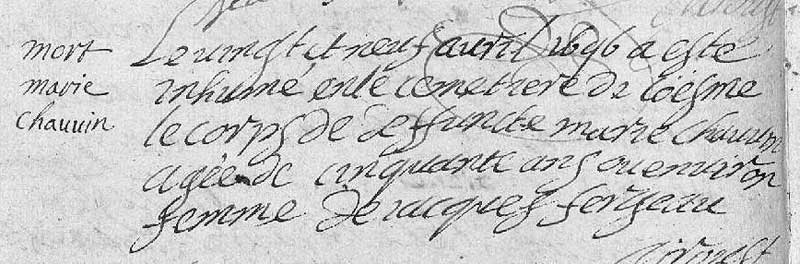 mort
marie
chauuin
Le uingt et neuf auril 1696 a esté
inhumé en le cemetiere de Coesme
le corps de deffuncte marie chauuin
agée de cinquante ans ou enuiron
femme de iacques